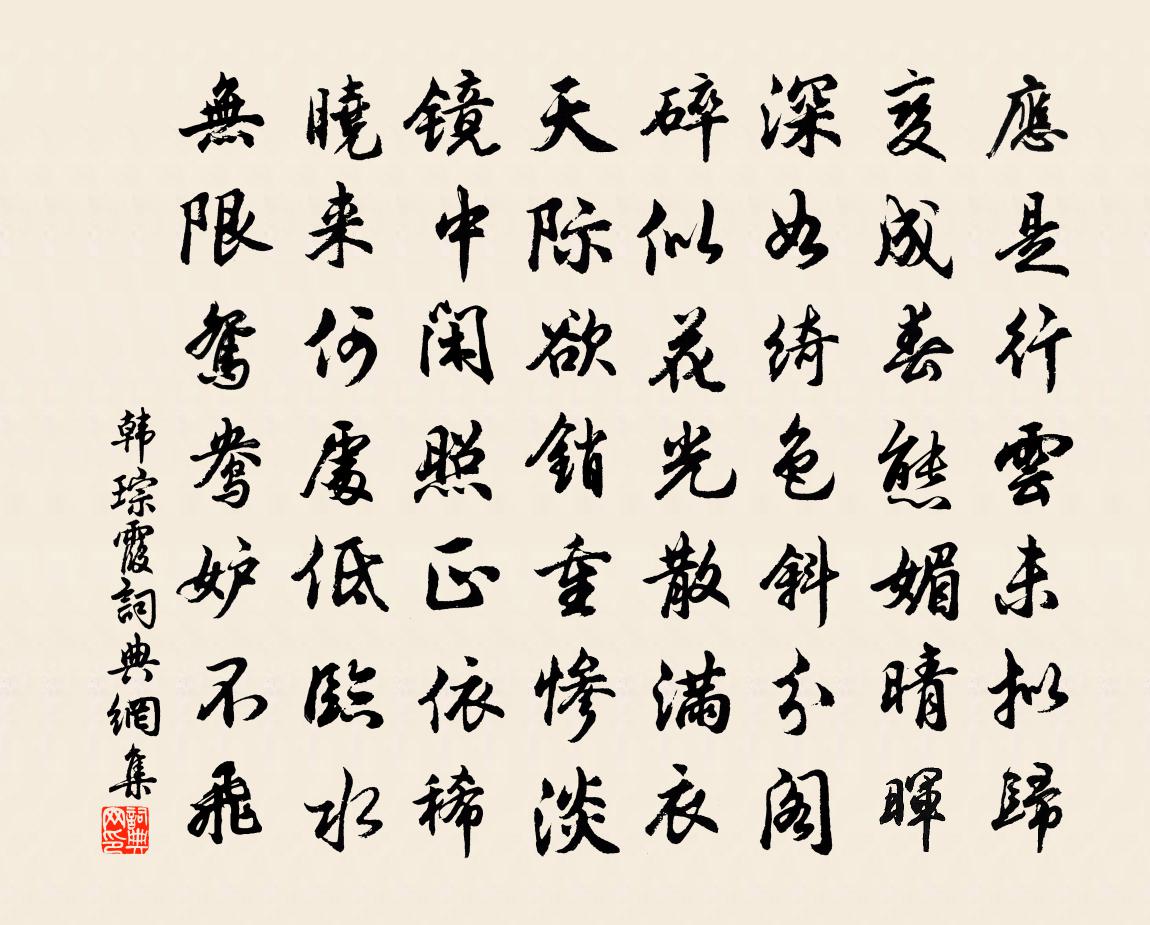 應是行雲未拟歸
变成春態媚晴暉
深如绮色斜分阁
碎似花光散满衣
天际欲銷重惨淡
镜中闲照正依稀
曉来何處低臨水
無限鴛鴦妒不飛
韩琮霞詞典網集
詞典网印